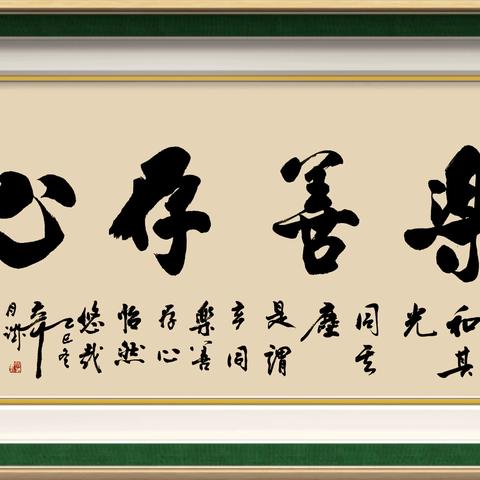 樂善存心
和其
光
同其
塵
是謂
玄同
樂善
存心
怡然
悠哉
乙巳冬